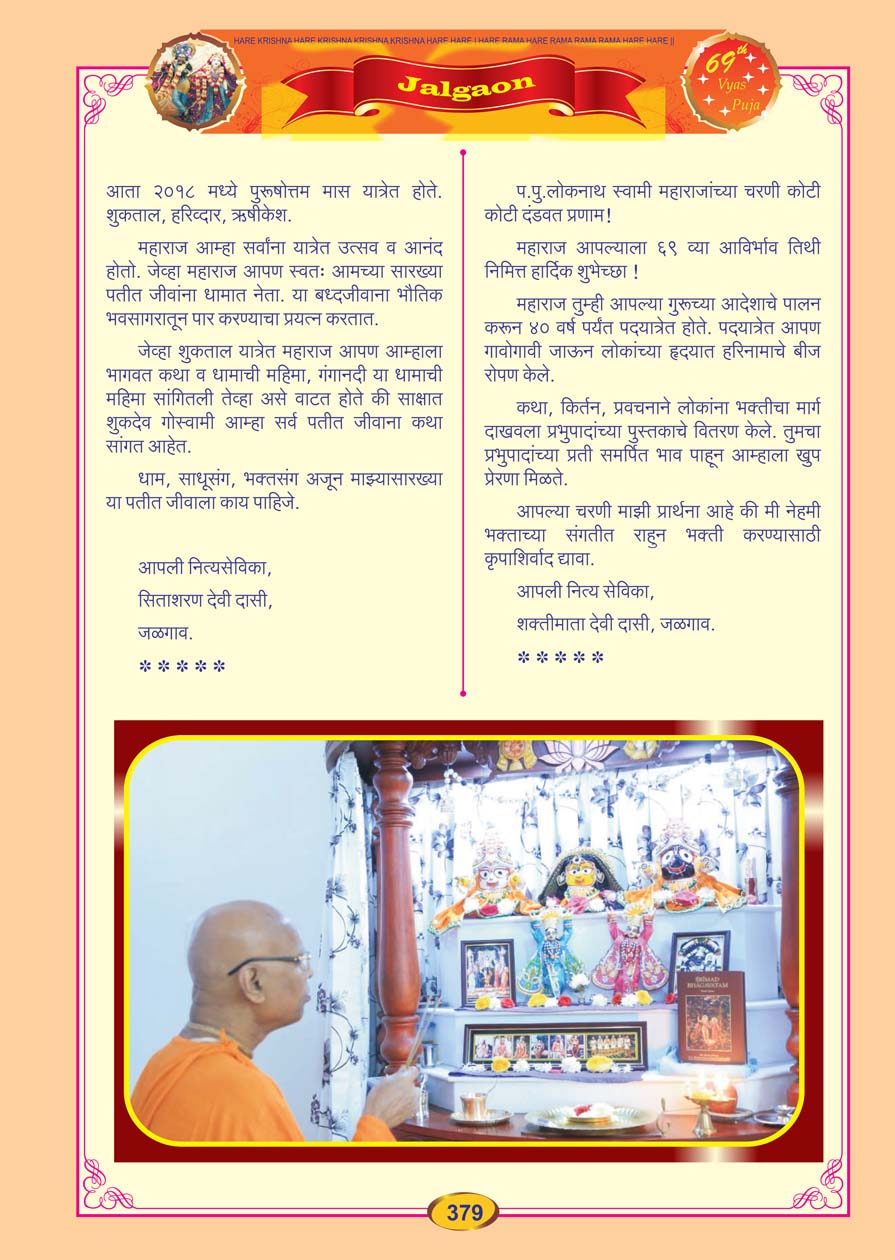 HARE KRISHNA HARE KRISHNA KRISHNA KRISHNA HARE HARE | HARE RAMA HARE RAMA RAMA RAMA HARE HARE ||
Jalgaon
69th
Vyas
Puja
आता २०१८ मध्ये पुरूषोत्तम मास यात्रेत होते.
शुकताल, हरिव्दार, ऋषीकेश.
महाराज आम्हा सर्वांना यात्रेत उत्सव व आनंद
होतो. जेव्हा महाराज आपण स्वतः आमच्या सारख्या
पतीत जीवांना धामात नेता. या बध्दजीवाना भौतिक
भवसागरातून पार करण्याचा प्रयत्न करतात.
जेव्हा शुकताल यात्रेत महाराज आपण आम्हाला
भागवत कथा व धामाची महिमा, गंगानदी या धामाची
महिमा सांगितली तेव्हा असे वाटत होते की साक्षात
शुकदेव गोस्वामी आम्हा सर्व पतीत जीवाना कथा
सांगत आहेत.
धाम, साधूसंग, भक्तसंग अजून माझ्यासारख्या
या पतीत जीवाला काय पाहिजे.
आपली नित्यसेविका,
सिताशरण देवी दासी,
जळगाव.
* * * * *
प.पु.लोकनाथ स्वामी महाराजांच्या चरणी कोटी
कोटी दंडवत प्रणाम!
महाराज आपल्याला ६९ व्या आविर्भाव तिथी
निमित्त हार्दिक शुभेच्छा !
महाराज तुम्ही आपल्या गुरूच्या आदेशाचे पालन
करून ४० वर्ष पर्यंत पदयात्रेत होते. पदयात्रेत आपण
गावोगावी जाऊन लोकांच्या हृदयात हरिनामाचे बीज
रोपण केले.
कथा, किर्तन, प्रवचनाने लोकांना भक्तीचा मार्ग
दाखवला प्रभुपादांच्या पुस्तकाचे वितरण केले. तुमचा
प्रभुपादांच्या प्रती समर्पित भाव पाहून आम्हाला खुप
प्रेरणा मिळते.
आपल्या चरणी माझी प्रार्थना आहे की मी नेहमी
भक्ताच्या संगतीत राहुन भक्ती करण्यासाठी
कृपाशिर्वाद द्यावा.
आपली नित्य सेविका,
शक्तीमाता देवी दासी, जळगाव.
* * * * *
ŚRĪMAD
BHĀGAVATAM
379